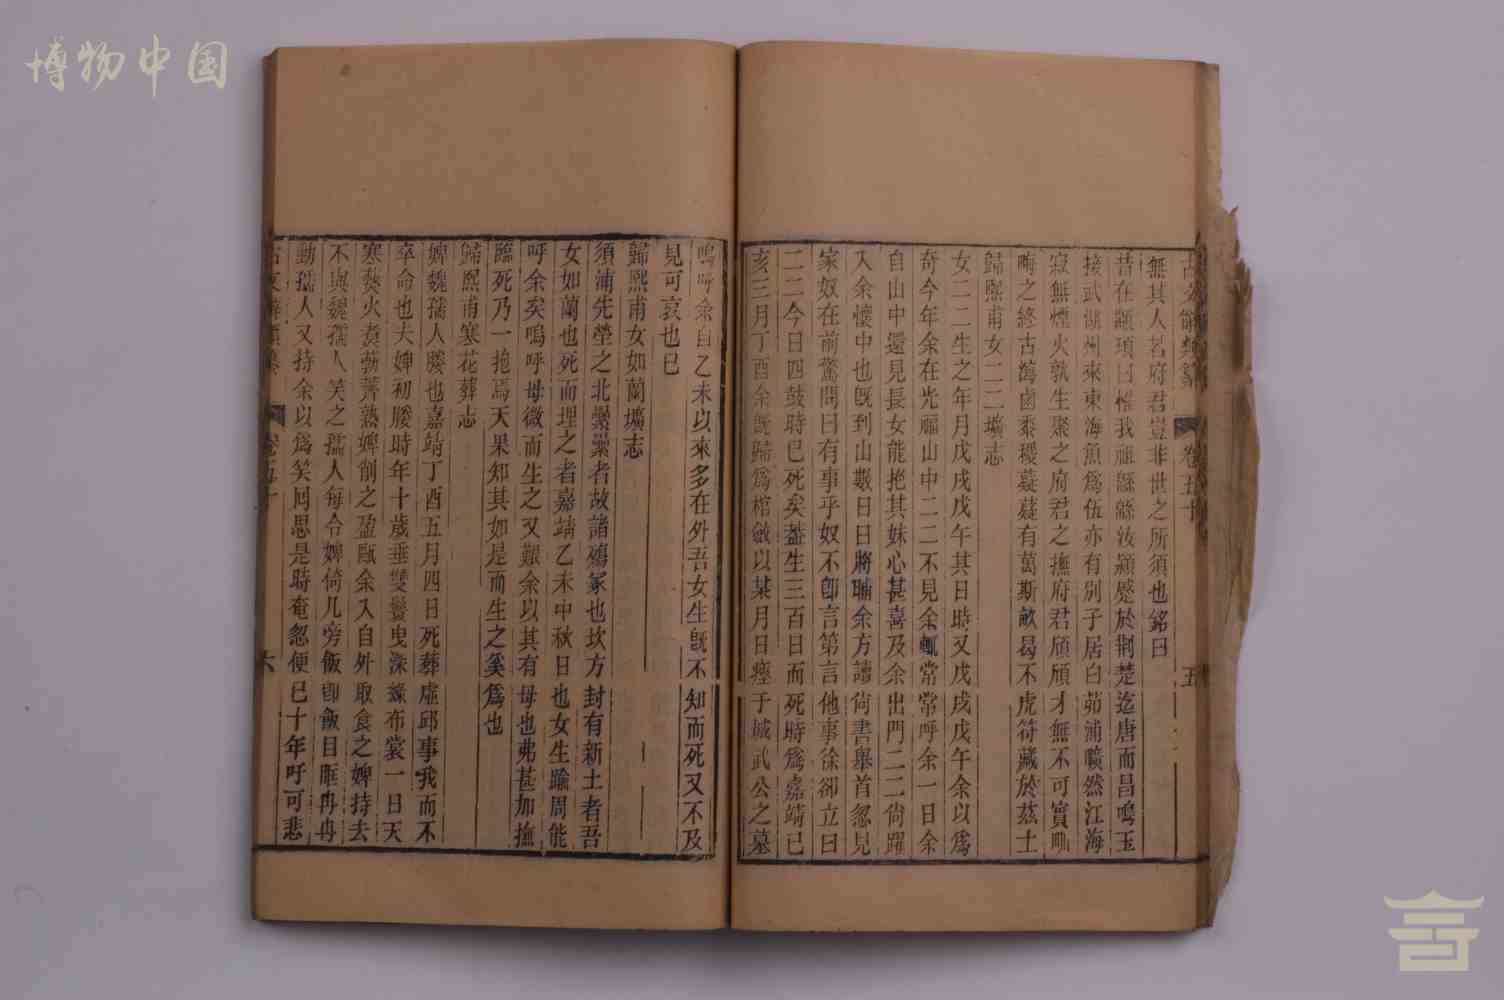 博物中国
古文辭類纂 卷五十 五
無其人若府君豈非世之所須也銘曰
昔在顓頊曰惟我祖緜緜汝潁蹙於荆楚迄唐而昌鳴玉
接武湖州來東海魚爲伍亦有別子居白茆浦曠然江海
寂無煙火孰生聚之府君之撫府君頎頎才無不可實畎
畮之終古潟鹵黍稷薿薿有萬斯畝曷不虎符藏於茲土
歸熙甫女二二壙志
女二二生之年月戊戌戊午其日時又戊戌戊午余以爲
奇今年余在光福山中二二不見余輒常常呼余一日余
自山中還見長女能抱其妹心甚喜及余出門二二尚躍
入余懷中也旣到山數日日將晡余方讀尚書舉首忽見
家奴在前驚問曰有事乎奴不卽言第言他事徐卻立曰
二二今日四鼓時已死矣蓋生三百日而死時爲嘉靖已
亥三月丁酉余旣歸爲棺斂以某月日瘞于城武公之墓
嗚呼余自乙未以來多在外吾女生旣不知而死又不及
見可哀也已
歸熙甫女如蘭壙志
須浦先塋之北纍纍者故諸殤冢也坎方封有新土者吾
女如蘭也死而埋之者嘉靖乙未中秋日也女生踰周能
呼余矣嗚呼母微而生之又艱余以其有母也弗甚加撫
臨死乃一抱焉天果知其如是而生之奚爲也
歸熙甫寒花葬志
婢魏孺人媵也嘉靖丁酉五月四日死葬虛邱事我而不
卒命也夫婢初媵時年十歲垂雙鬟曳深綠布裳一日天
寒爇火煮葧薺熟婢削之盈甌余入自外取食之婢持去
不與魏孺人笑之孺人每令婢倚几旁飯卽飯目眶冉冉
動孺人又持余以爲笑回思是時奄忽便已十年吁可悲
古文辭類纂 卷五十 六